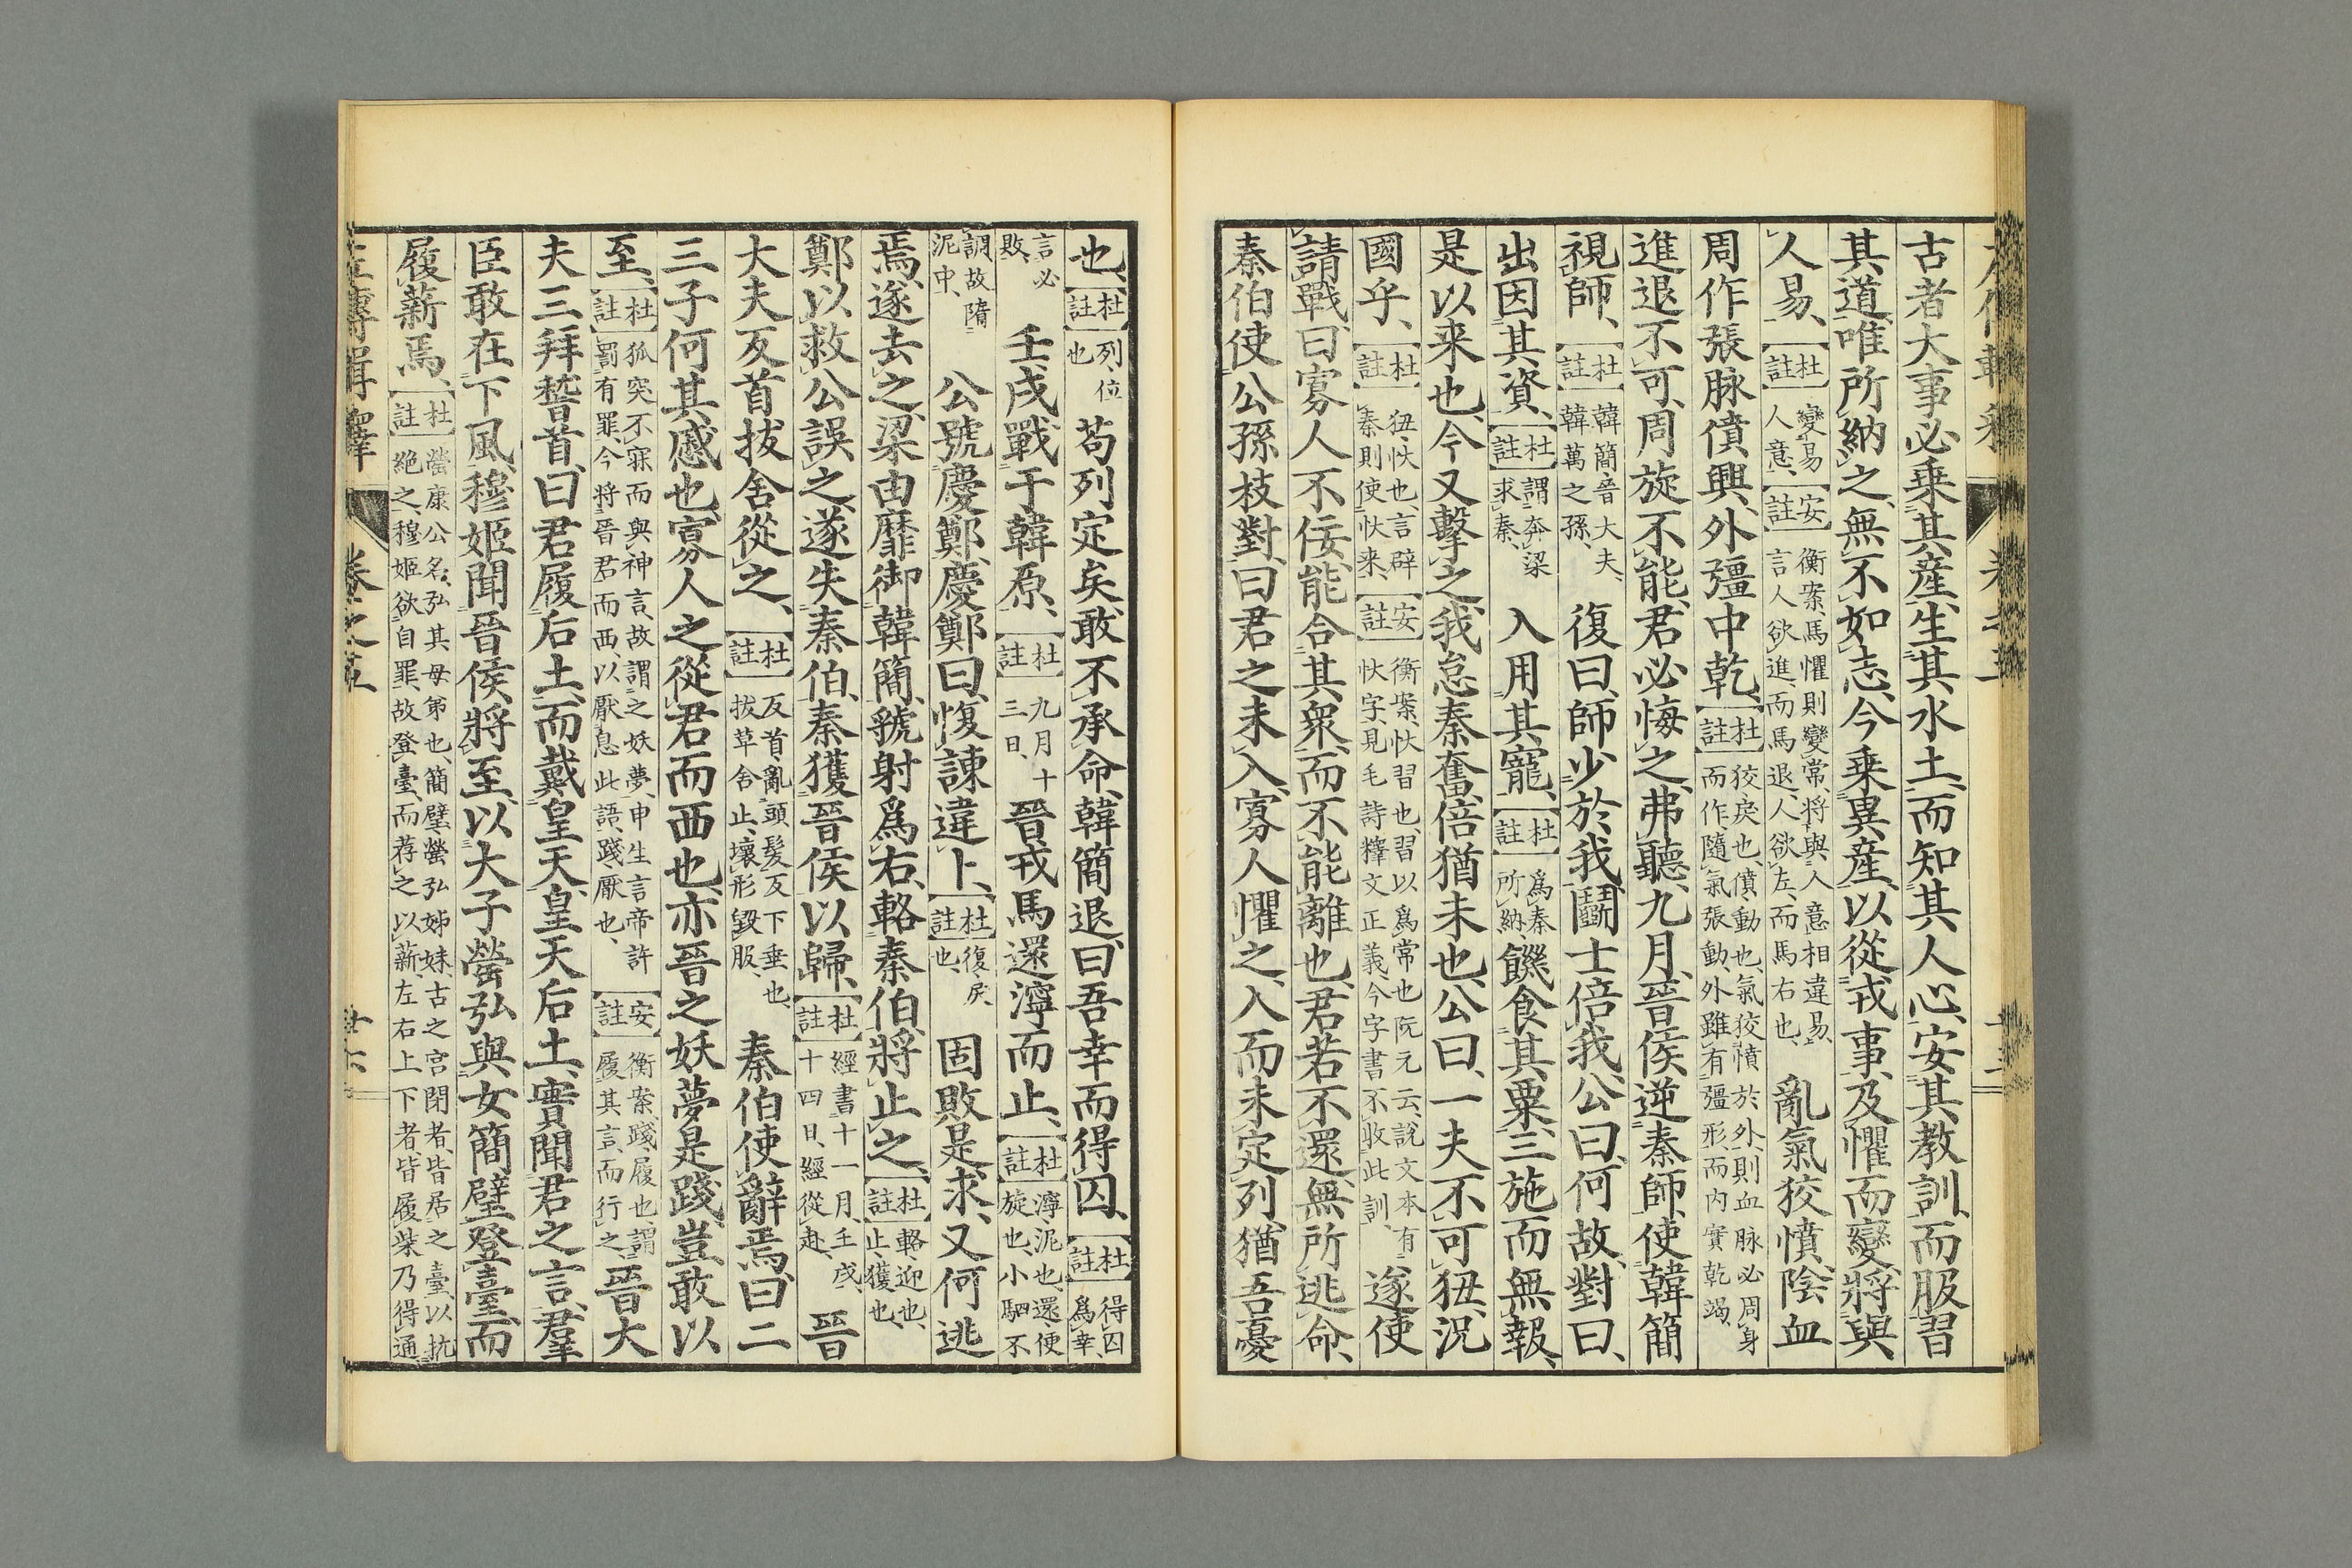 古者大事必乗其産、生其水土、而知其人心、安其教訓、而服習
其道、唯所納之、無不如志、今乗異産、以從戎事、及懼而變、將與
人易、【杜註】變易人意、【安註】衡案、馬懼則變常、將與人意相違易、言人欲進、而馬退、人欲左、而馬右也、亂氣狡憤、陰血
周作、張脉僨興、外彊中乾、【杜註】狡、戾也、僨、動也、氣狡憤於外、則血脉必周身而作、隨氣張動、外雖有彊形、而内實乾竭、
進退不可、周旋不能、君必悔之、弗聽、九月、晉侯逆秦師、使韓簡
視師、【杜註】韓簡、晉大夫、韓萬之孫、復曰、師少於我、鬭士倍我、公曰、何故、對曰、
出因其資、【杜註】謂奔梁求秦、入用其寵、【杜註】爲秦所納、饑食其粟、三施而無報、
是以来也、今又擊之、我怠秦奮、倍猶未也、公曰、一夫不可狃、況
國乎、【杜註】狃、忕也、言辟秦則使忕来、【安註】衡案、忕習也、習以爲常也、阮元云、說文本有忕字、見毛詩釋文正義、今字書不收此訓、遂使
請戰、曰、寡人不佞、能合其衆、而不能離也、君若不還、無所逃命、
秦伯使公孫枝對、曰、君之未入、寡人懼之、入而未定列、猶吾憂
也、【杜註】列、位也 苟列定矣、敢不承命、韓簡退曰、吾幸而得囚、【杜註】得囚爲幸、
言必敗、壬戌、戰于韓原、【杜註】九月十三日、晉戎馬還濘而止、【杜註】濘、泥也、還、便旋也、小駟不
調、故隋泥中、公號慶鄭、慶鄭曰、愎諫違卜、【杜註】愎、戾也、固敗是求、又何逃
焉、遂去之、梁由靡御韓簡、虢射爲右、輅秦伯、將止之、【杜註】輅、迎也、止、獲也、
鄭以救公誤之、遂失秦伯、秦獲晉侯以歸、【杜註】經書十一月、壬戌、十四日、經從赴、晉
大夫反首拔舍從之、【杜註】反首、亂頭髮反下垂也、拔草舍止、壞形毀服、秦伯使辭焉、曰、二
三子何其慼也、寡人之從君而西也、亦晉之妖夢是踐、豈敢以
至、【杜註】狐突不寐而與神言、故謂之妖夢、申生言帝許罰有罪、今將晉君而西、以厭息此語、踐、厭也、【安註】衡案、踐、履也、謂履其言、而行之、晉大
夫三拜稽首、曰、君履后土、而戴皇天、皇天后土、實聞君之言、羣
臣敢在下風、穆姬聞晉侯將至、以大子罃弘與女簡璧登臺、而
履薪焉、【杜註】罃、康公名、弘、其母弟也、簡璧、罃弘姊妹、古之宮閉者、皆居之臺、以抗絶之、穆姬欲自罪、故登臺、而荐之以薪、左右上下者、皆履柴乃得通